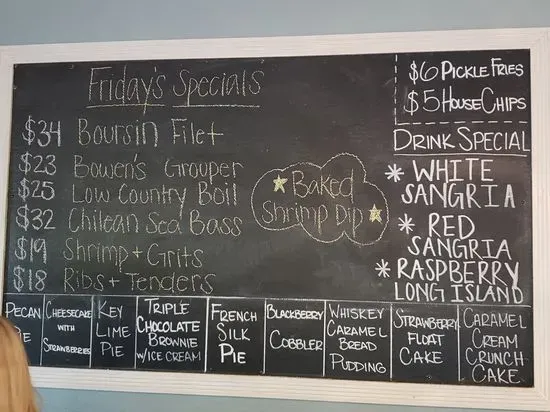 Friday's Specials
$34 Boursin Filet
$23 Bowen's Grouper
$25 Low Country Boil
$32 Chilean Sea Bass
$19 Shrimp + Grits
$18 Ribs + Tenders
Baked
Shrimp Dip
$6 PICKLE FRIES
$5 HOUSE CHIPS
DRINK SPECIAL
* WHITE
SANGRIA
* RED
SANGRIA
* RASPBERRY
LONG ISLAND
PECAN
PIE
CHEESECAKE
WITH
STRAWBERRIES
KEY
LIME
PIE
TRIPLE
CHOCOLATE
BROWNIE
W/ICE CREAM
FRENCH
SILK
PIE
BLACKBERRY
COBBLER
WHISKEY
CARAMEL
BREAD
PUDDING
STRAWBERRY
FLOAT
CAKE
CARAMEL
CREAM
CRUNCH
CAKE